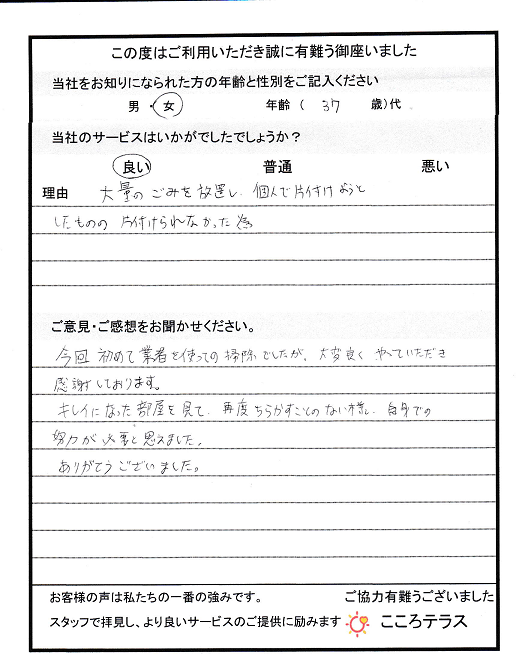 この度はご利用いただき誠に有難う御座いました
当社をお知りになられた方の年齢と性別をご記入ください
男・女 年齢( 37 歳)代
当社のサービスはいかがでしたでしょうか？
良い 普通 悪い
理由 大量のごみを放置し、個人で片付けようと
したものの 片付けられなかった為
ご意見・ご感想をお聞かせください。
今回 初めて業者を使っての掃除でしたが、大変良く やっていただき
感謝しております。
キレイになった部屋を見て、再度ちらかすことのない様に、自身での
努力が必要と思えました。
ありがとうございました。
お客様の声は私たちの一番の強みです。 ご協力有難うございました
スタッフで拝見し、より良いサービスのご提供に励みます こころテラス